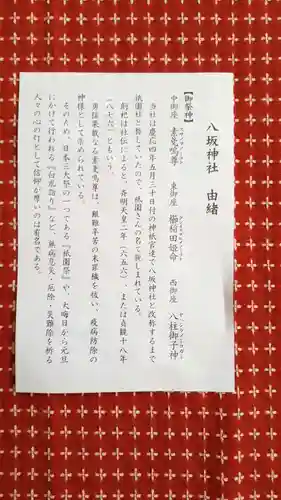 八坂神社　由緒
【御祭神】
中御座　素戔嗚尊　東御座　櫛稲田姫命　西御座　八柱御子神
当社は慶応四年五月三十日付の神祇官達で八坂神社と改称するまで
祇園社と称していたので、祇園さんの名で親しまれている。
創祀は社伝によると、斉明天皇二年（六五六）、または貞観十八年
（八七六）ともいう。
勇猛果敢なる素戔嗚尊は、艱難辛苦の末罪穢を祓い、疫病防除の
神様として崇められている。
そのため、日本三大祭の一つである『祇園祭』や、大晦日から元旦
にかけて行われる『白朮詣り』など、無病息災・厄除・災難除を祈る
人々の心の灯として信仰が厚いのは著名である。